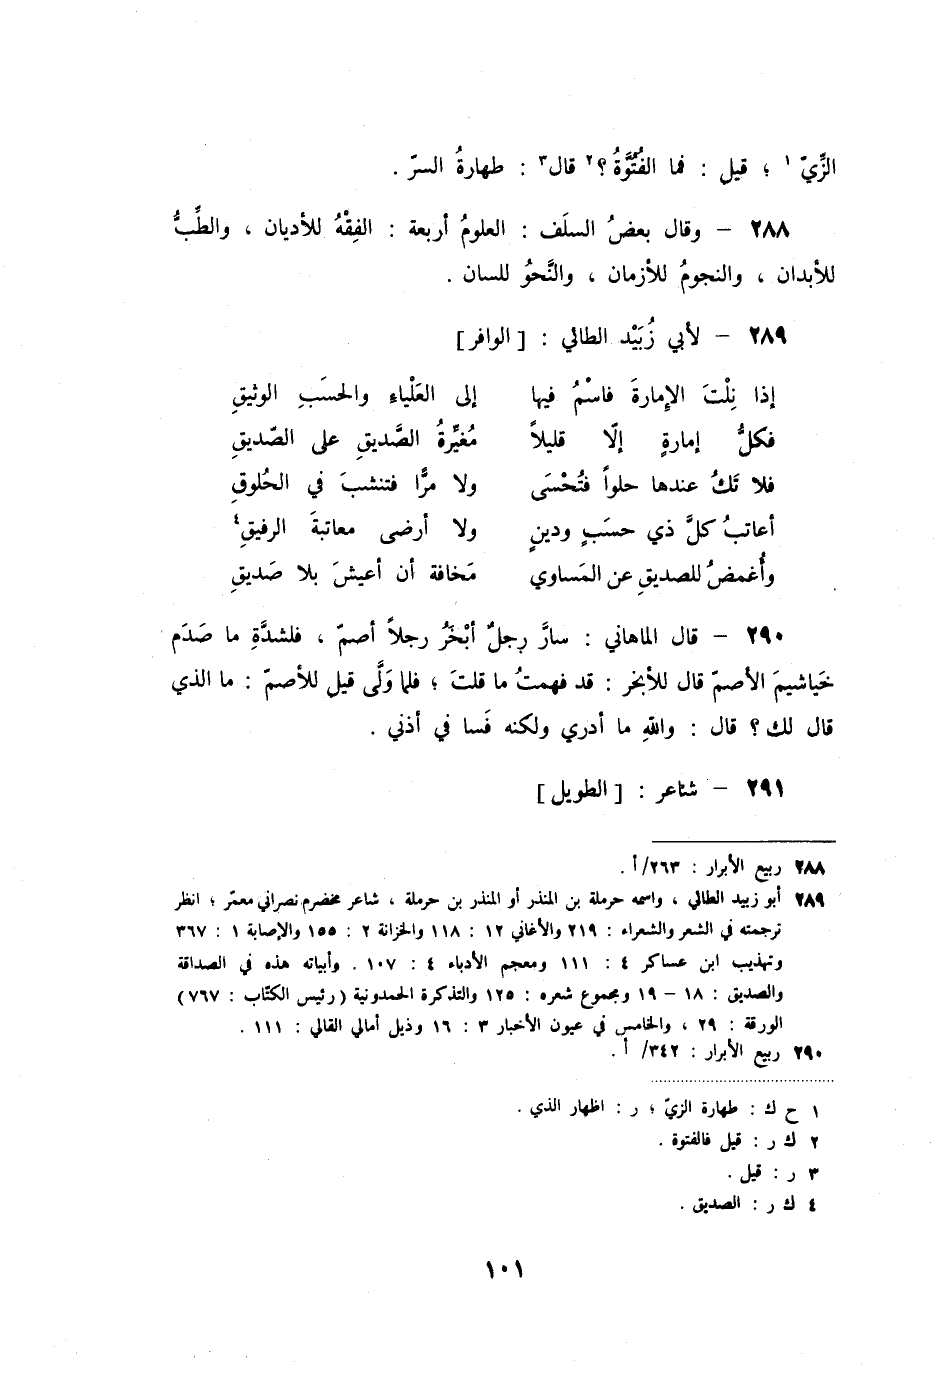 الزِّيّ ١ ؛ قيل : فما الفُتُوَّةُ ؟٢ قال٣ : طهارةُ السرّ .
٢٨٨ – وقال بعضُ السلَف : العلومُ أربعة : الفِقْهُ للأديان ، والطِّبُّ
للأبدان ، والنجومُ للأزمان ، والنَّحوُ للسان .
٢٨٩ – لأبي زُبَيْد الطائي : [ الوافر ]
إذا نِلْتَ الإمارةَ فاسْمُ فيها إلى العَلْياءِ والحسَبِ الوثيقِ
فكلُّ إمارةٍ إلّا قليلاً مُغيِّرةُ الصَّديقِ على الصّديقِ
فلا تَكُ عندها حلواً فتُحْسَى ولا مرًّا فتنشبَ في الحُلوقِ
أعاتبُ كلَّ ذي حسَبٍ ودينٍ ولا أرضى معاتبةَ الرفيقِ٤
وأُغمضُ للصديقِ عن المَساوي مَخافة أن أعيشَ بلا صَديقِ
٢٩٠ – قال الماهاني : سارَّ رجلٌ أبْخَرُ رجلاً أصمّ ، فلشدَّةِ ما صَدَم
خَياشيمَ الأصمّ قال للأبخر : قد فهمتُ ما قلتَ ؛ فلما وَلَّى قيل للأصمّ : ما الذي
قال لك ؟ قال : واللهِ ما أدري ولكنه فَسا في أذني .
٢٩١ – شاعر : [ الطويل ]
٢٨٨ ربيع الأبرار : ٢٦٣/أ .
٢٨٩ أبو زبيد الطائي ، واسمه حرملة بن المنذر أو المنذر بن حرملة ، شاعر مخضرم نصراني معمّر ؛ انظر
ترجمته في الشعر والشعراء : ٢١٩ والأغاني ١٢ : ١١٨ والخزانة ٢ : ١٥٥ والإصابة ١ : ٣٦٧
وتهذيب ابن عساكر ٤ : ١١١ ومعجم الأدباء ٤ : ١٠٧ . وأبياته هذه في الصداقة
والصديق : ١٨ – ١٩ ومجموع شعره : ١٢٥ والتذكرة الحمدونية (رئيس الكتّاب : ٧٦٧)
الورقة : ٢٩ ، والخامس في عيون الأخبار ٣ : ١٦ وذيل أمالي القالي : ١١١ .
٢٩٠ ربيع الأبرار : ٣٤٢/ أ .
١ ح ك : طهارة الزيّ ؛ ر : اظهار الذي .
٢ ك ر : قيل فالفتوة .
٣ ر : قيل .
٤ ك ر : الصديق .
١٠١